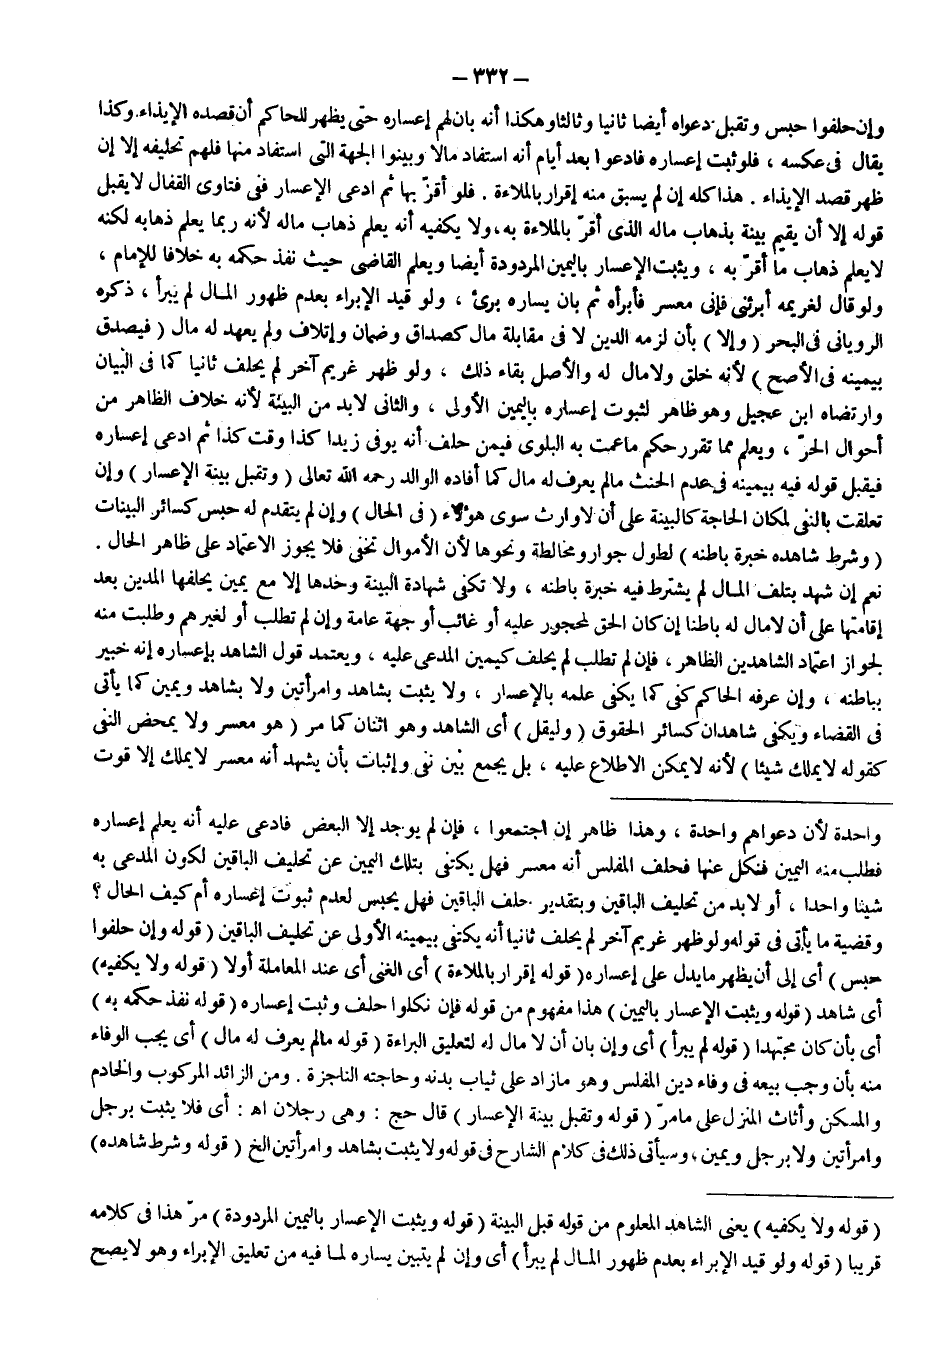 – ٣٣٢ –
وإن حلفوا حبس وتقبل دعواه أيضا ثانيا وثالثا وهكذا أنه بان لهم إعساره حتى يظهر للحاكم أن قصده الإيذاء. وكذا
يقال فى عكسه ، فلو ثبت إعساره فادعوا بعد أيام أنه استفاد مالا وبينوا الجهة التى استفاد منها فلهم تحليفه إلا إن
ظهر قصد الإيذاء . هذا كله إن لم يسبق منه إقرار بالملاءة . فلو أقرّ بها ثم ادعى الإعسار ففى فتاوى القفال لا يقبل
قوله إلا أن يقيم بينة بذهاب ماله الذى أقرّ بالملاءة به، ولا يكفيه أنه يعلم ذهاب ماله لأنه ربما يعلم ذهابه لكنه
لا يعلم ذهاب ما أقرّ به ، ويثبت الإعسار باليمين المردودة أيضا ويعلم القاضى حيث نفذ حكمه به خلافا للإمام ،
ولو قال لغريمه أبرئنى فإنى معسر فأبرأه ثم بان يساره برئ ، ولو قيد الإبراء بعدم ظهور المال لم يبرأ ، ذكره
الرويانى فى البحر ( وإلا ) بأن لزمه الدين لا فى مقابلة مال كصداق وضمان وإتلاف ولم يعهد له مال ( فيصدق
بيمينه فى الأصح ) لأنه خلق ولا مال له والأصل بقاء ذلك ، ولو ظهر غريم آخر لم يحلف ثانيا كما فى البيان
وارتضاه ابن عجيل وهو ظاهر لثبوت إعساره باليمين الأولى ، والثانى لابد من البينة لأنه خلاف الظاهر من
أحوال الحرّ ، ويعلم مما تقرر حكم ماعمت به البلوى فيمن حلف أنه يوفى زيدا كذا وقت كذا ثم ادعى إعساره
فيقبل قوله فيه بيمينه فى عدم الحنث مالم يعرف له مال كما أفاده الوالد رحمه الله تعالى ( وتقبل بينة الإعسار ) وإن
تعلقت بالنفى لمكان الحاجة كالبينة على أن لا وارث سوى هؤلاء ( فى الحال ) وإن لم يتقدم له حبس كسائر البينات
( وشرط شاهده خبرة باطنه ) لطول جوار ومخالطة ونحوها لأن الأموال تخفى فلا يجوز الاعتماد على ظاهر الحال .
نعم إن شهد بتلف المال لم يشترط فيه خبرة باطنه ، ولا تكفى شهادة البينة وحدها إلا مع يمين يحلفها المدين بعد
إقامتها على أن لا مال له باطنا إن كان الحق لمحجور عليه أو غائب أو جهة عامة وإن لم تطلب أو لغيرهم وطلبت منه
لجواز اعتماد الشاهدين الظاهر ، فإن لم تطلب لم يحلف كيمين المدعى عليه ، ويعتمد قول الشاهد بإعساره إنه خبير
بباطنه ، وإن عرفه الحاكم كفى كما يكفى علمه بالإعسار ، ولا يثبت بشاهد وامرأتين ولا بشاهد ويمين كما يأتى
فى القضاء ويكفى شاهدان كسائر الحقوق ( وليقل ) أى الشاهد وهو اثنان كما مر ( هو معسر ولا يمحض النفى
كقوله لا يملك شيئا ) لأنه لا يمكن الاطلاع عليه ، بل يجمع بين نفى وإثبات بأن يشهد أنه معسر لا يملك إلا قوت
واحدة لأن دعواهم واحدة ، وهذا ظاهر إن اجتمعوا ، فإن لم يوجد إلا البعض فادعى عليه أنه يعلم إعساره
فطلب منه اليمين فنكل عنها فحلف المفلس أنه معسر فهل يكتفى بتلك اليمين عن تحليف الباقين لكون المدعى به
شيئا واحدا ، أو لابد من تحليف الباقين وبتقدير حلف الباقين فهل يحبس لعدم ثبوت إعساره أم كيف الحال ؟
وقضية ما يأتى فى قوله ولو ظهر غريم آخر لم يحلف ثانيا أنه يكتفى بيمينه الأولى عن تحليف الباقين ( قوله وإن حلفوا
حبس ) أى إلى أن يظهر ما يدل على إعساره ( قوله إقرار بالملاءة ) أى الغنى أى عند المعاملة أولا ( قوله ولا يكفيه)
أى شاهد ( قوله ويثبت الإعسار باليمين ) هذا مفهوم من قوله فإن نكلوا حلف وثبت إعساره ( قوله نفذ حكمه به )
أى بأن كان مجتهدا ( قوله لم يبرأ ) أى وإن بان أن لا مال له لتعليق البراءة ( قوله مالم يعرف له مال ) أى يجب الوفاء
منه بأن وجب بيعه فى وفاء دين المفلس وهو مازاد على ثياب بدنه وحاجته الناجزة . ومن الزائد المركوب والخادم
والمسكن وأثاث المنزل على مامرّ ( قوله وتقبل بينة الإعسار ) قال حج : وهى رجلان اه : أى فلا يثبت برجل
وامرأتين ولا برجل ويمين، وسيأتى ذلك فى كلام الشارح فى قوله ولا يثبت بشاهد وامرأتين الخ ( قوله وشرط شاهده)
( قوله ولا يكفيه ) يعنى الشاهد المعلوم من قوله قبل البينة ( قوله ويثبت الإعسار باليمين المردودة ) مرّ هذا فى كلامه
قريبا ( قوله ولو قيد الإبراء بعدم ظهور المال لم يبرأ ) أى وإن لم يتبين يساره لما فيه من تعليق الإبراء وهو لا يصح